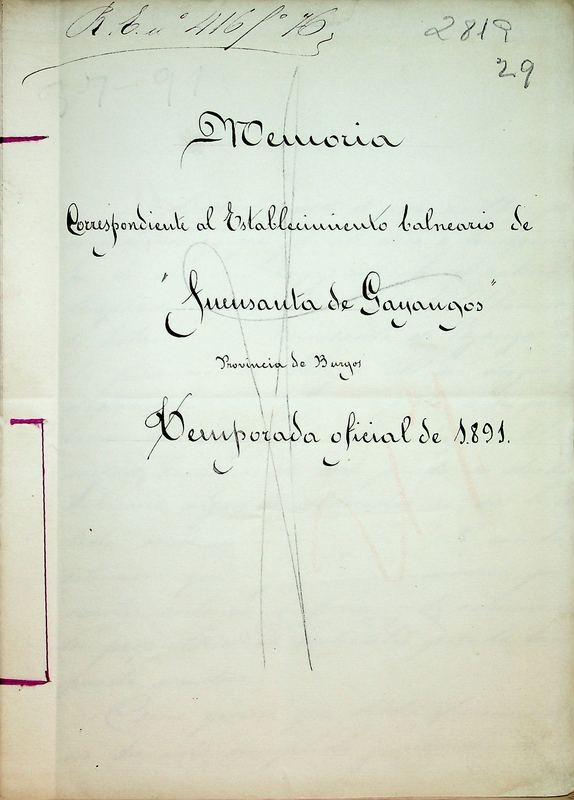 R. E. nº 416 fº 76
2819
29
37-91
Memoria
Correspondiente al Establecimiento balneario de
"Fuensanta de Gayangos"
Provincia de Burgos
Temporada oficial de 1.891.